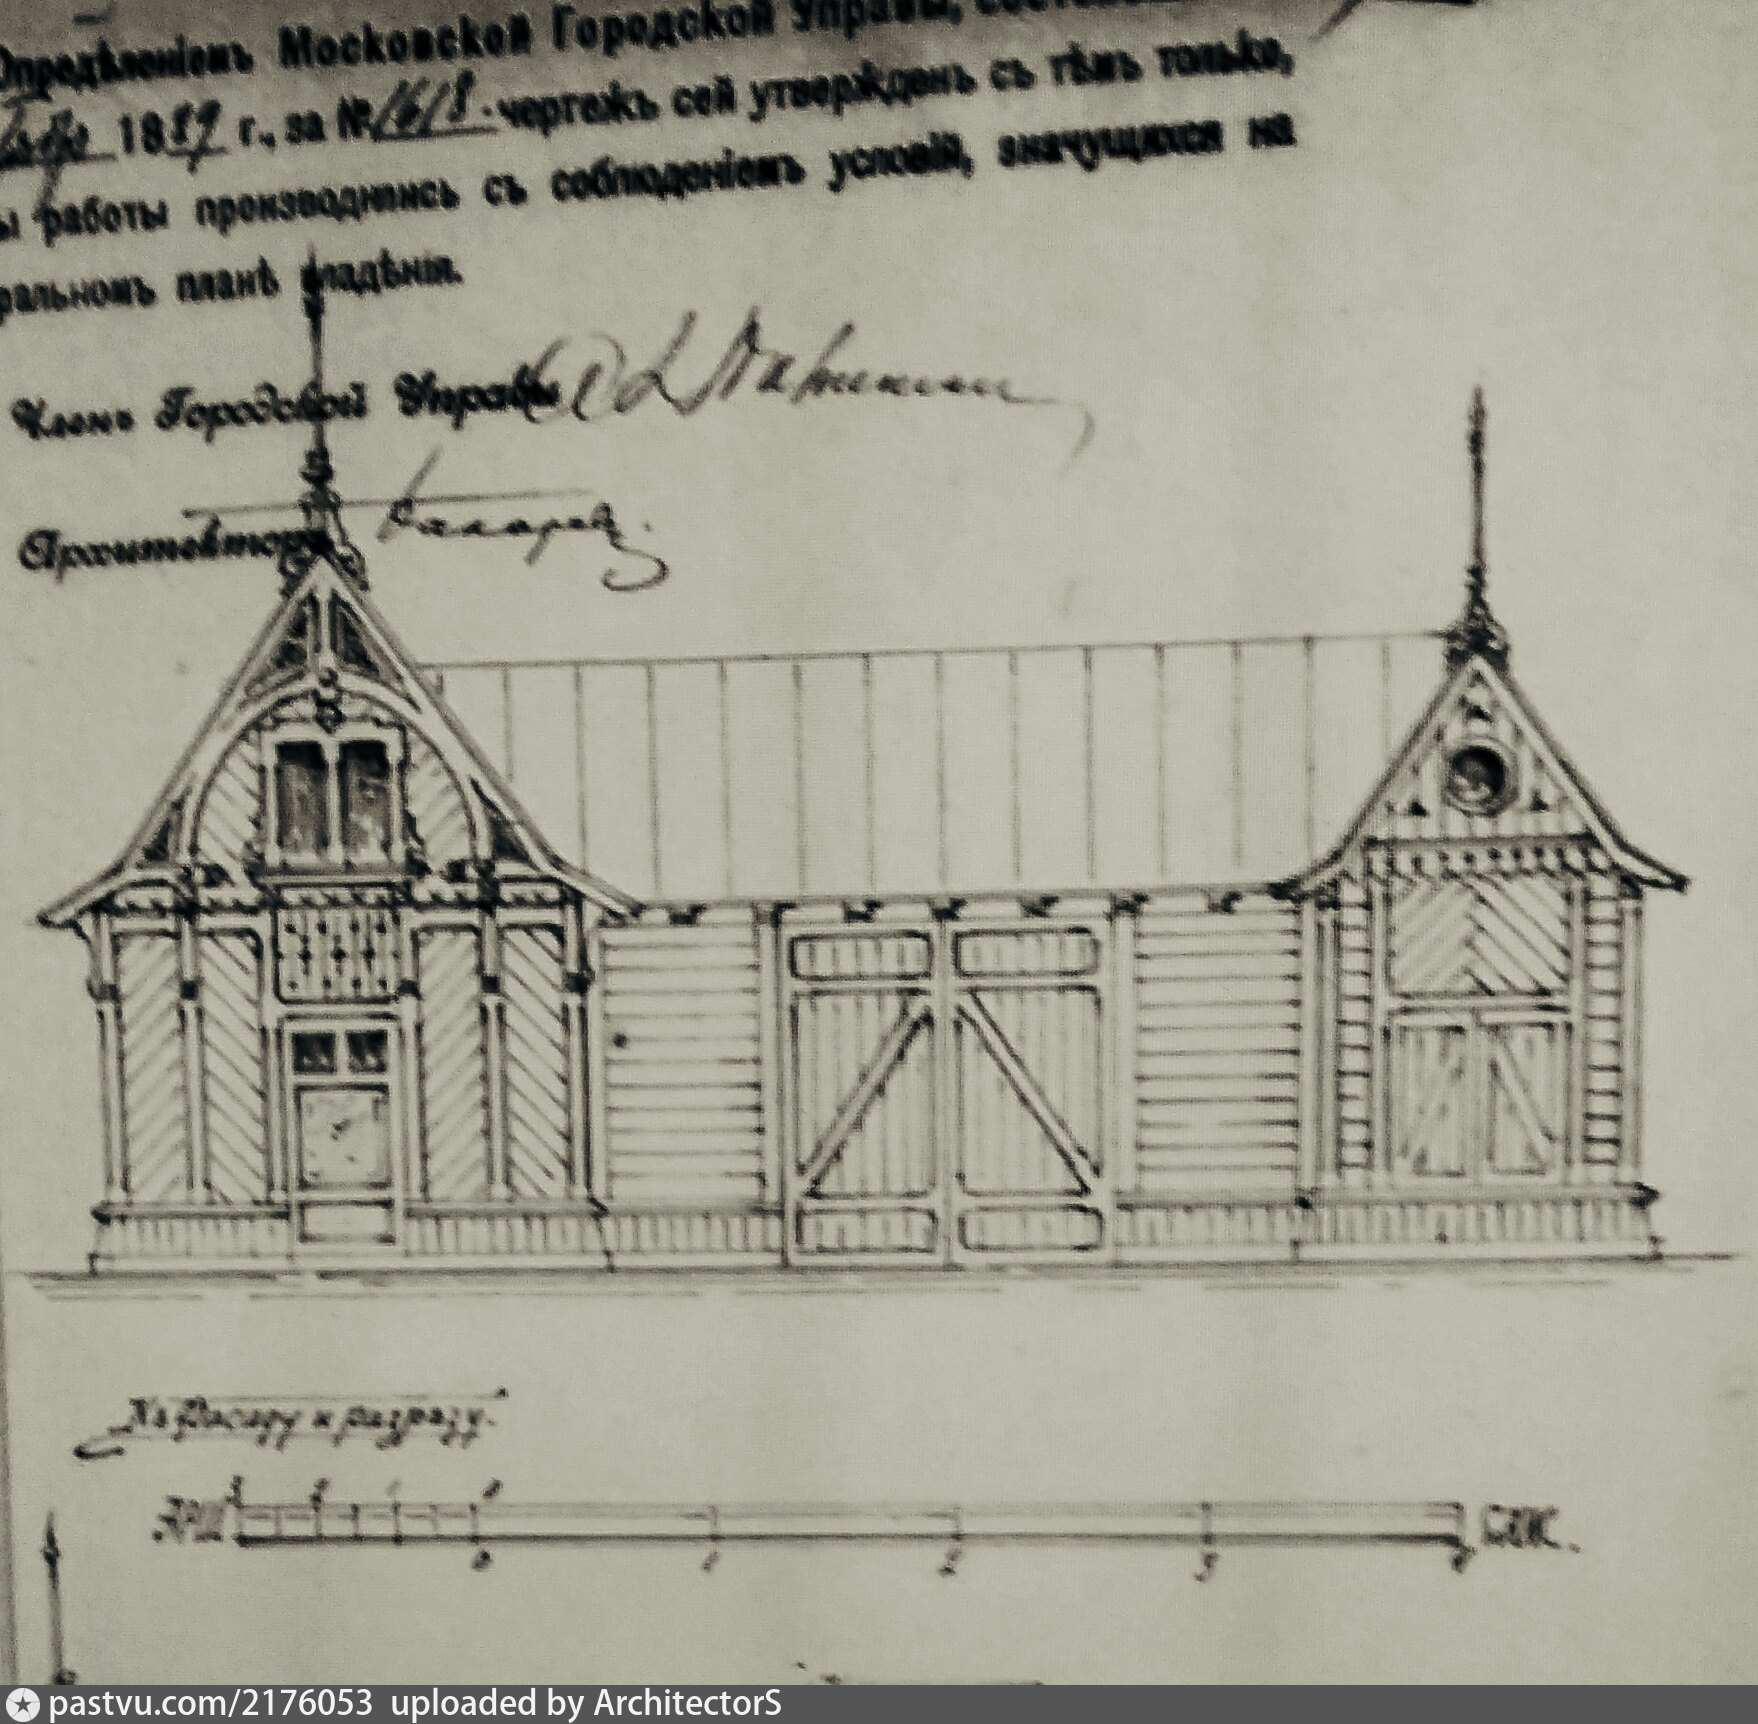 Опредѣленіемъ Московской Городской Управы,
1889 г., за № 1618. чертежъ сей утвержденъ съ тѣмъ только,
ы работы производились съ соблюденіемъ условій, значущихся на
ральномъ планѣ владѣнія.
Членъ Городской Управы
Архитекторъ
Къ фасаду и разрѣзу.
АРШ 3 2 1 0
0 1 2 3 4 САЖ.
pastvu.com/2176053 uploaded by ArchitectorS